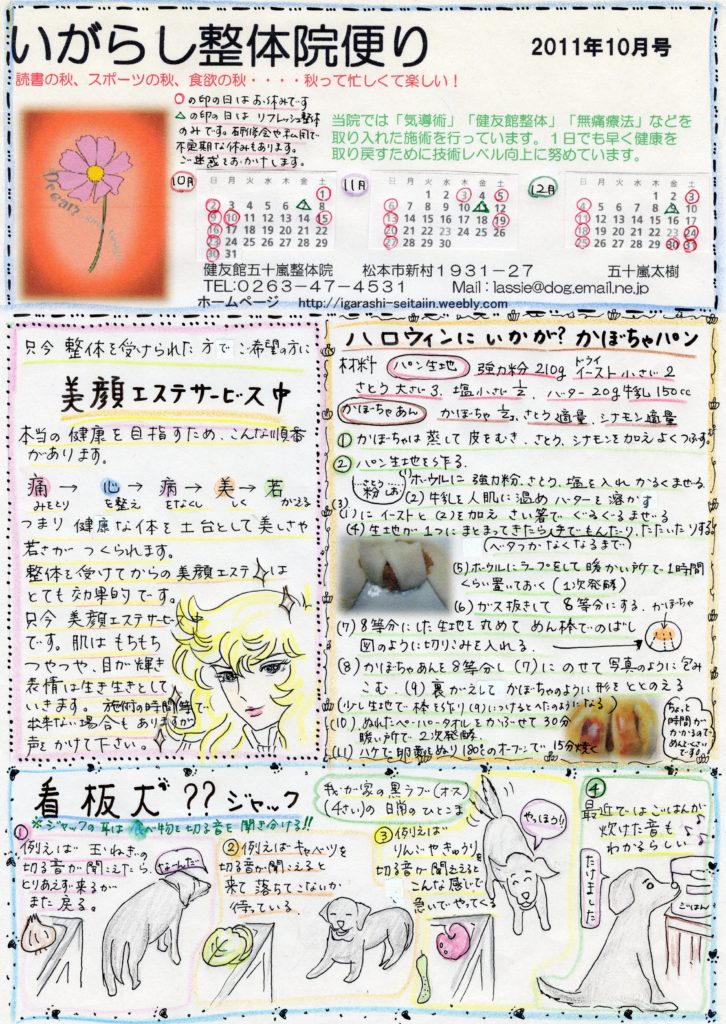 いがらし整体院便り 2011年10月号
読書の秋、スポーツの秋、食欲の秋・・・・秋って忙しくて楽しい！
○の印の日はお休みです
△の印の日は リフレッシュ整体
のみです。研修会や私用で
不定期な休みもあります。
ご迷惑をおかけします。
当院では「気導術」「健友館整体」「無痛療法」などを
取り入れた施術を行っています。1日でも早く健康を
取り戻すために技術レベル向上に努めています。
10月
日 月 火 水 木 金 土
1
2 3 4 5 6 7 8
9 10 11 12 13 14 15
16 17 18 19 20 21 22
23 24 25 26 27 28 29
30 31
11月
日 月 火 水 木 金 土
1 2 3 4 5
6 7 8 9 10 11 12
13 14 15 16 17 18 19
20 21 22 23 24 25 26
27 28 29 30
12月
日 月 火 水 木 金 土
1 2 3
4 5 6 7 8 9 10
11 12 13 14 15 16 17
18 19 20 21 22 23 24
25 26 27 28 29 30 31
健友館五十嵐整体院 松本市新村1931-27 五十嵐太樹
TEL:0263-47-4531 Mail:lassie@dog.email.ne.jp
ホームページ http://igarashi-seitaiin.weebly.com
只今 整体を受けられた 方で ご希望の方に
美顔エステサービス中
本当の 健康を 目指すため、こんな順番
があります。
痛 → 心 → 病 → 美 → 若
みをとり を整え をなくし しく がえる
つまり 健康な体を 土台として 美しさや
若さが つくられます。
整体を受けてからの 美顔エステは
とても 効果的です。
只今 美顔エステサービス中
です。肌は もちもち
つやつや、目が輝き
表情は生き生きとして
いきます。施術の時間等で
出来ない場合もありますが
声をかけて下さい。
ハロウィンに いかが？ かぼちゃパン
材料 パン生地 強力粉 210g ドライイースト 小さじ 2
さとう 大さじ 3、塩 小さじ 1/2、バター 20g 牛乳 150cc
かぼちゃあん かぼちゃ 1/2コ、さとう 適量、シナモン 適量
① かぼちゃは 蒸して 皮をむき、さとう、シナモンを加え よくつぶす。
② パン生地を作る。
さとう 粉 しお
(1) ボウルに 強力粉、さとう、塩を入れ かるくまぜる
(2) 牛乳を人肌に温め バターを溶かす
(3) (1)に イーストと (2)を加え さい箸で ぐるぐるまぜる
(4) 生地が 1つに まとまってきたら 手で もんだり、たたいたりする
(ベタつかなくなるまで)
(5) ボウルにラップをして 暖かい所で 1時間
くらい置いておく (1次発酵)
(6) ガス抜きして 8等分にする。 かぼちゃ
(7) 8等分にした 生地を 丸めて めん棒でのばし
図のように 切りこみを入れる。
(8) かぼちゃあんを 8等分し (7)に のせて 写真のように包み
こむ。 (9) 裏がえして かぼちゃのように 形を ととのえる
(少し生地で 棒を作り (9)につけるとへたのようになる)
(10) ぬれたペーパータオルを かぶせて 30分
暖い所で 2次発酵。
(11) ハケで卵黄をぬり 180℃のオーブンで 15分焼く
ちょっと
時間が
かかるので
めんどくさい
ですョ。
看板犬 ?? ジャック
我が家の黒ラブ(オス)
(4さい)の 日常の ひとこま
※ジャックの耳は 食べ物を切る音を 聞き分ける!!
① 例えば 玉ねぎの
切る音が聞こえたら、
とりあえず来るが
また戻る。
なーんだ
② 例えばキャベツを
切る音が聞こえると
来て 落ちてこないか
待っている。
③ 例えば
りんごやきゅうりを
切る音が聞こえると
こんな感じで
急いでやってくる
やっほう!!
④
最近ではごはんが
炊けた音も
わかるらしい
たけました
ごはん